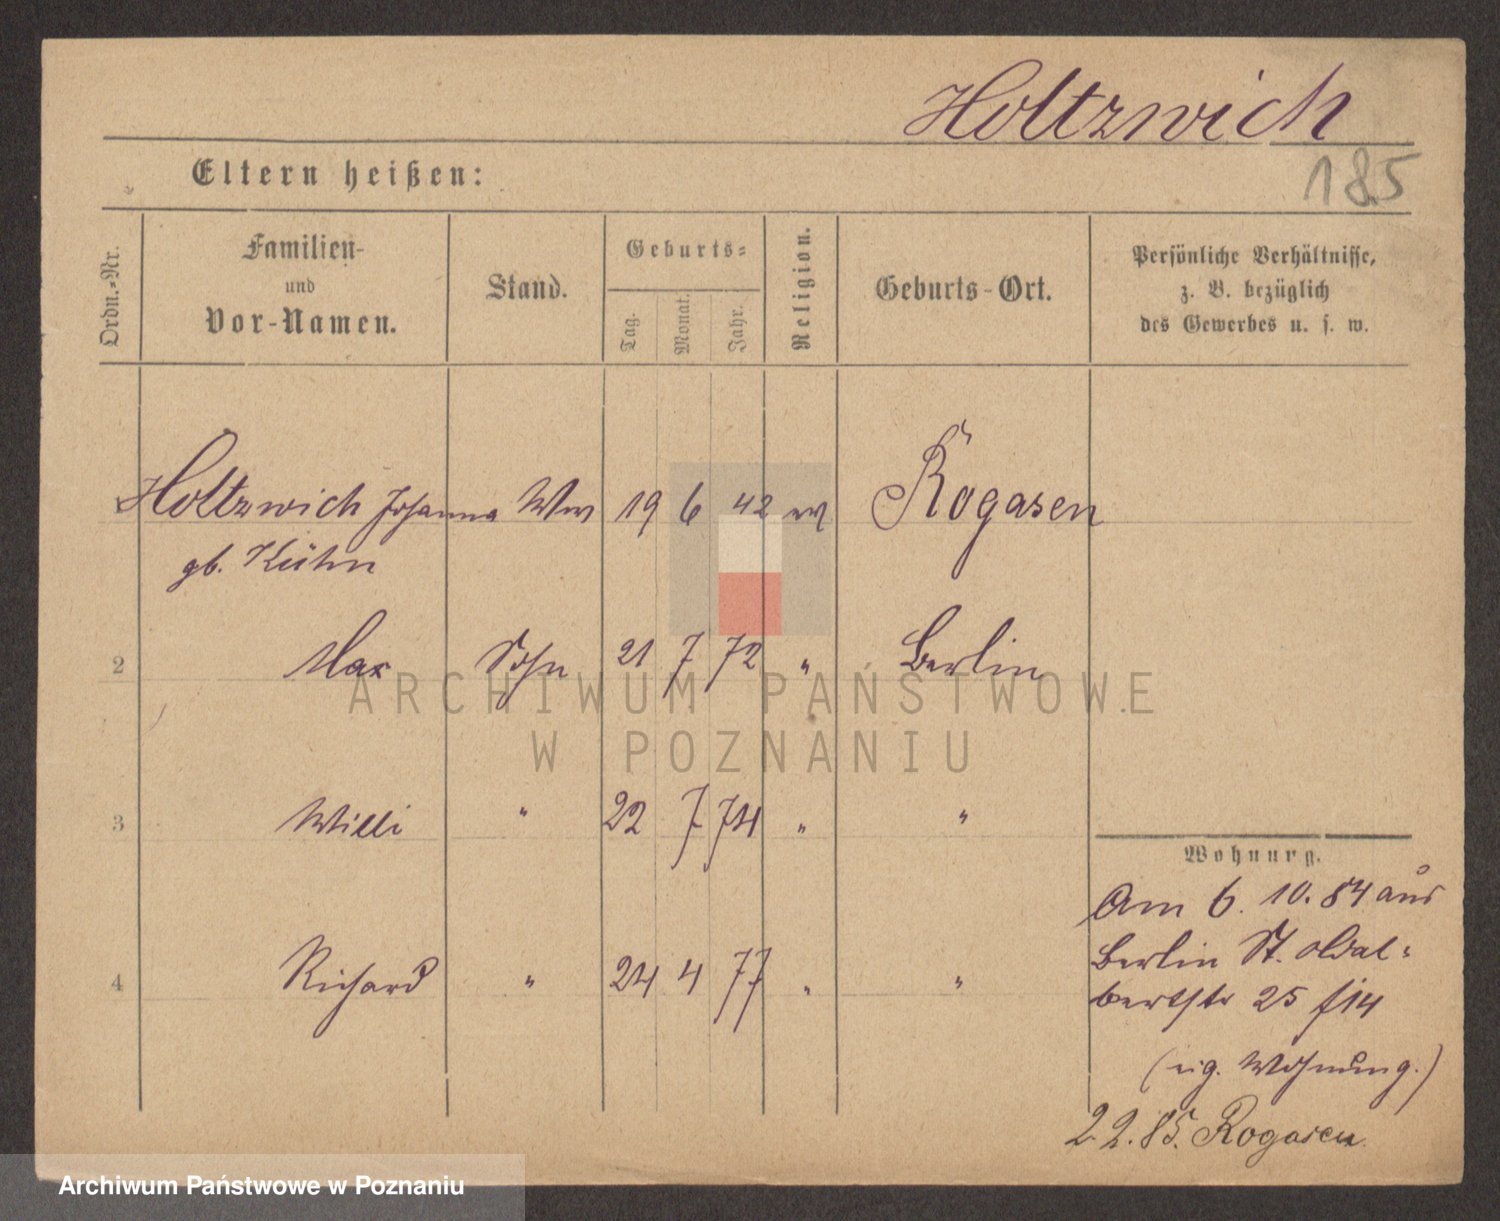 Holtzwich
185
Eltern heißen:
Ordn.-Nr.
Familien-
und
Vor-Namen.
Stand.
Geburts-
Tag.
Monat.
Jahr.
Religion.
Geburts-Ort.
Persönliche Verhältnisse,
z. B. bezüglich
des Gewerbes u. s. w.
Holtzwich Johanna Ww 19 6 42 Rogasen
gb. Kühn
2 Max Sohn 21 7 72 " Berlin
ARCHIWUM PAŃSTWOWE
W POZNANIU
3 Willi " 22 7 74 " "
Wohnung.
Am 6. 10. 84 aus
4 Richard " 24 4 77 " "
Berlin St. Adal-
bertstr 25
(eig. Wohnung.)
2.2.85. Rogasen
Archiwum Państwowe w Poznaniu